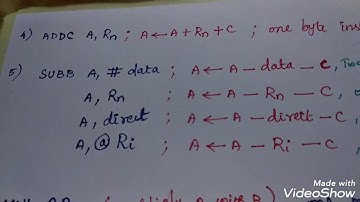 4) ADDC A, Rn ; A ← A + Rn + C ; one byte ins
5) SUBB A, # data ; A ← A - data - C,
A, Rn ; A ← A - Rn - C,
A, direct ; A ← A - direct - C,
A, @ Ri ; A ← A - Ri - C,
Made with
VideoShow